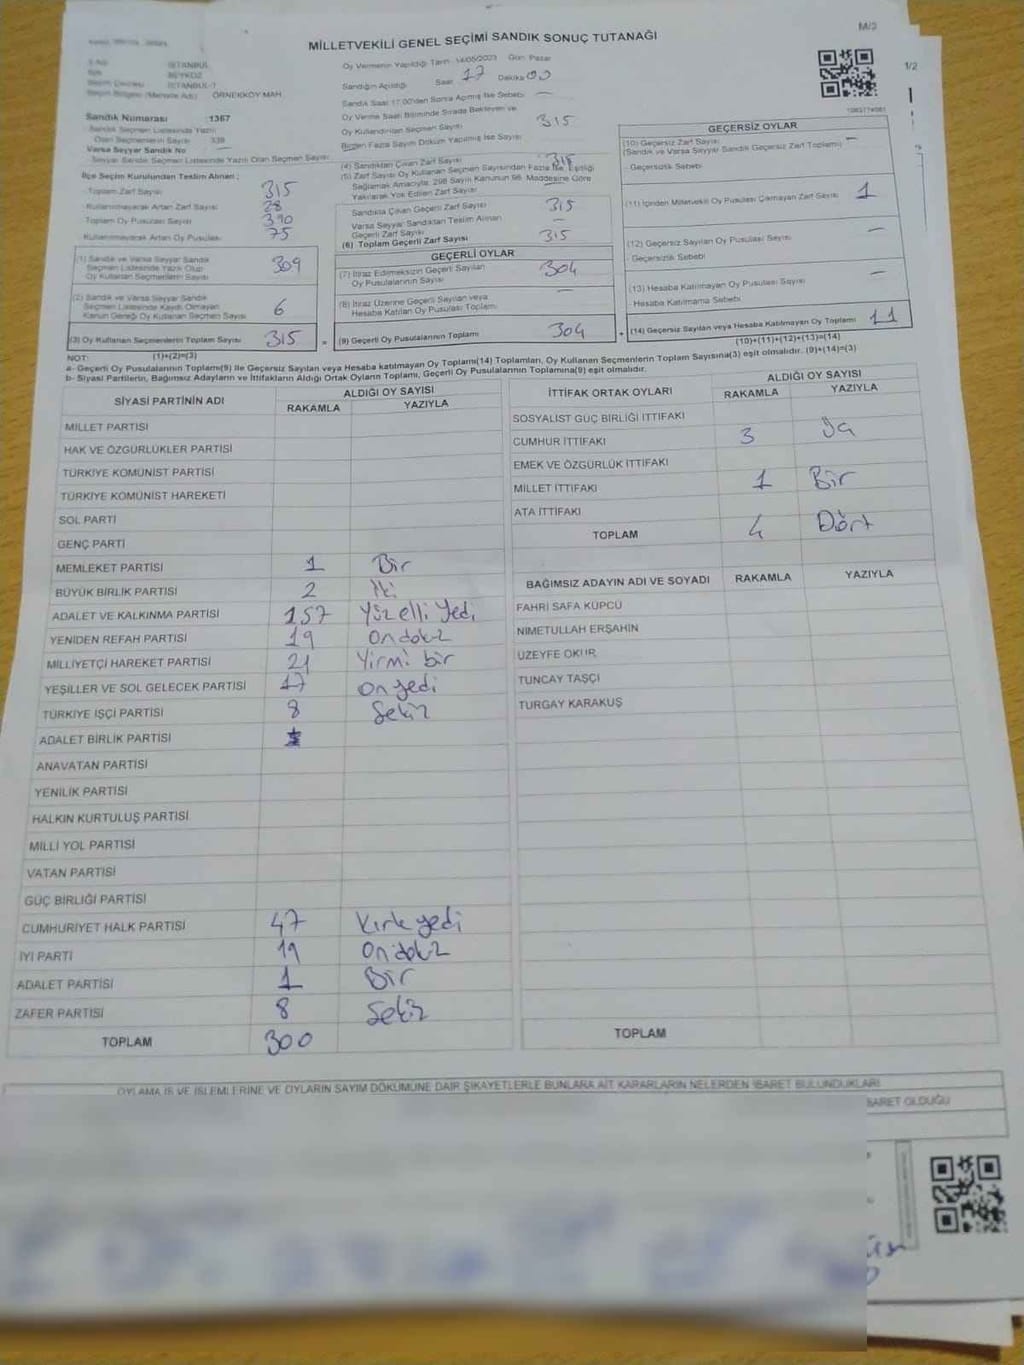 MİLLETVEKİLİ GENEL SEÇİMİ SANDIK SONUÇ TUTANAĞI
M/3
1/2
İSTANBUL
BEYKOZ
İSTANBUL-1
ÖRNEKKÖY MAH.
Sandık Numarası :1367
Sandık Seçmen Listesinde Yazılı
Olan Seçmenlerin Sayısı 339
Varsa Seyyar Sandık No
Seyyar Sandık Seçmen Listesinde Yazılı Olan Seçmen Sayısı
İlçe Seçim Kurulundan Teslim Alınan ;
Toplam Zarf Sayısı 315
Kullanılmayarak Artan Zarf Sayısı 28
Toplam Oy Pusulası Sayısı 390
Kullanılmayarak Artan Oy Pusulası 75
(1) Sandık ve Varsa Seyyar Sandık
Seçmen Listesinde Yazılı Olup
Oy Kullanan Seçmenlerin Sayısı 309
(2) Sandık ve Varsa Seyyar Sandık
Seçmen Listesinde Kaydı Olmayan
Kanun Gereği Oy Kullanan Seçmen Sayısı 6
(3) Oy Kullanan Seçmenlerin Toplam Sayısı 315
(1)+(2)=(3)
Oy Vermenin Yapıldığı Tarih :14/05/2023 Gün :Pazar
Sandığın Açıldığı Saat 17 Dakika 00
Sandık Saat 17:00'den Sonra Açılmış İse Sebebi —
Oy Verme Saati Bitiminde Sırada Bekleyen ve
Oy Kullandırılan Seçmen Sayısı 315
Birden Fazla Sayım Döküm Yapılmış İse Sayısı
(4) Sandıktan Çıkan Zarf Sayısı 315
(5) Zarf Sayısı Oy Kullanan Seçmen Sayısından Fazla İse, Eşitliği
Sağlamak Amacıyla, 298 Sayılı Kanunun 98. Maddesine Göre
Yakılarak Yok Edilen Zarf Sayısı
Sandıkta Çıkan Geçerli Zarf Sayısı 315
Varsa Seyyar Sandıktan Teslim Alınan
Geçerli Zarf Sayısı —
(6) Toplam Geçerli Zarf Sayısı 315
GEÇERLİ OYLAR
(7) İtiraz Edilmeksizin Geçerli Sayılan
Oy Pusulalarının Sayısı 304
(8) İtiraz Üzerine Geçerli Sayılan veya
Hesaba Katılan Oy Pusulası Toplamı —
(9) Geçerli Oy Pusulalarının Toplamı 304
GEÇERSİZ OYLAR
(10) Geçersiz Zarf Sayısı —
(Sandık ve Varsa Seyyar Sandık Geçersiz Zarf Toplamı)
- Geçersizlik Sebebi
(11) İçinden Milletvekili Oy Pusulası Çıkmayan Zarf Sayısı 1
(12) Geçersiz Sayılan Oy Pusulası Sayısı —
- Geçersizlik Sebebi
(13) Hesaba Katılmayan Oy Pusulası Sayısı —
- Hesaba Katılmama Sebebi
(14) Geçersiz Sayılan veya Hesaba Katılmayan Oy Toplamı 11
(10)+(11)+(12)+(13)=(14)
NOT:
a- Geçerli Oy Pusulalarının Toplamı(9) ile Geçersiz Sayılan veya Hesaba katılmayan Oy Toplamı(14) Toplamları, Oy Kullanan Seçmenlerin Toplam Sayısına(3) eşit olmalıdır. (9)+(14)=(3)
b- Siyasi Partilerin, Bağımsız Adayların ve İttifakların Aldığı Ortak Oyların Toplamı, Geçerli Oy Pusulalarının Toplamına(9) eşit olmalıdır.
SİYASİ PARTİNİN ADI
ALDIĞI OY SAYISI
RAKAMLA YAZIYLA
MİLLET PARTİSİ
HAK VE ÖZGÜRLÜKLER PARTİSİ
TÜRKİYE KOMÜNİST PARTİSİ
TÜRKİYE KOMÜNİST HAREKETİ
SOL PARTİ
GENÇ PARTİ
MEMLEKET PARTİSİ 1 Bir
BÜYÜK BİRLİK PARTİSİ 2 İki
ADALET VE KALKINMA PARTİSİ 157 Yüzelli Yedi
YENİDEN REFAH PARTİSİ 19 Ondokuz
MİLLİYETÇİ HAREKET PARTİSİ 21 Yirmi bir
YEŞİLLER VE SOL GELECEK PARTİSİ 17 Onyedi
TÜRKİYE İŞÇİ PARTİSİ 8 Sekiz
ADALET BİRLİK PARTİSİ
ANAVATAN PARTİSİ
YENİLİK PARTİSİ
HALKIN KURTULUŞ PARTİSİ
MİLLİ YOL PARTİSİ
VATAN PARTİSİ
GÜÇ BİRLİĞİ PARTİSİ
CUMHURİYET HALK PARTİSİ 47 Kırkyedi
İYİ PARTİ 19 Ondokuz
ADALET PARTİSİ 1 Bir
ZAFER PARTİSİ 8 Sekiz
TOPLAM 300
İTTİFAK ORTAK OYLARI
ALDIĞI OY SAYISI
RAKAMLA YAZIYLA
SOSYALİST GÜÇ BİRLİĞİ İTTİFAKI
CUMHUR İTTİFAKI 3 Üç
EMEK VE ÖZGÜRLÜK İTTİFAKI
MİLLET İTTİFAKI 1 Bir
ATA İTTİFAKI
TOPLAM 4 Dört
BAĞIMSIZ ADAYIN ADI VE SOYADI RAKAMLA YAZIYLA
FAHRİ SAFA KÜPCÜ
NİMETULLAH ERŞAHİN
ÜZEYFE OKUR
TUNCAY TAŞÇI
TURGAY KARAKUŞ
TOPLAM
OYLAMA İŞ VE İŞLEMLERİNE VE OYLARIN SAYIM DÖKÜMÜNE DAİR ŞİKAYETLERLE BUNLARA AİT KARARLARIN NELERDEN İBARET BULUNDUKLARI
İBARET OLDUĞU